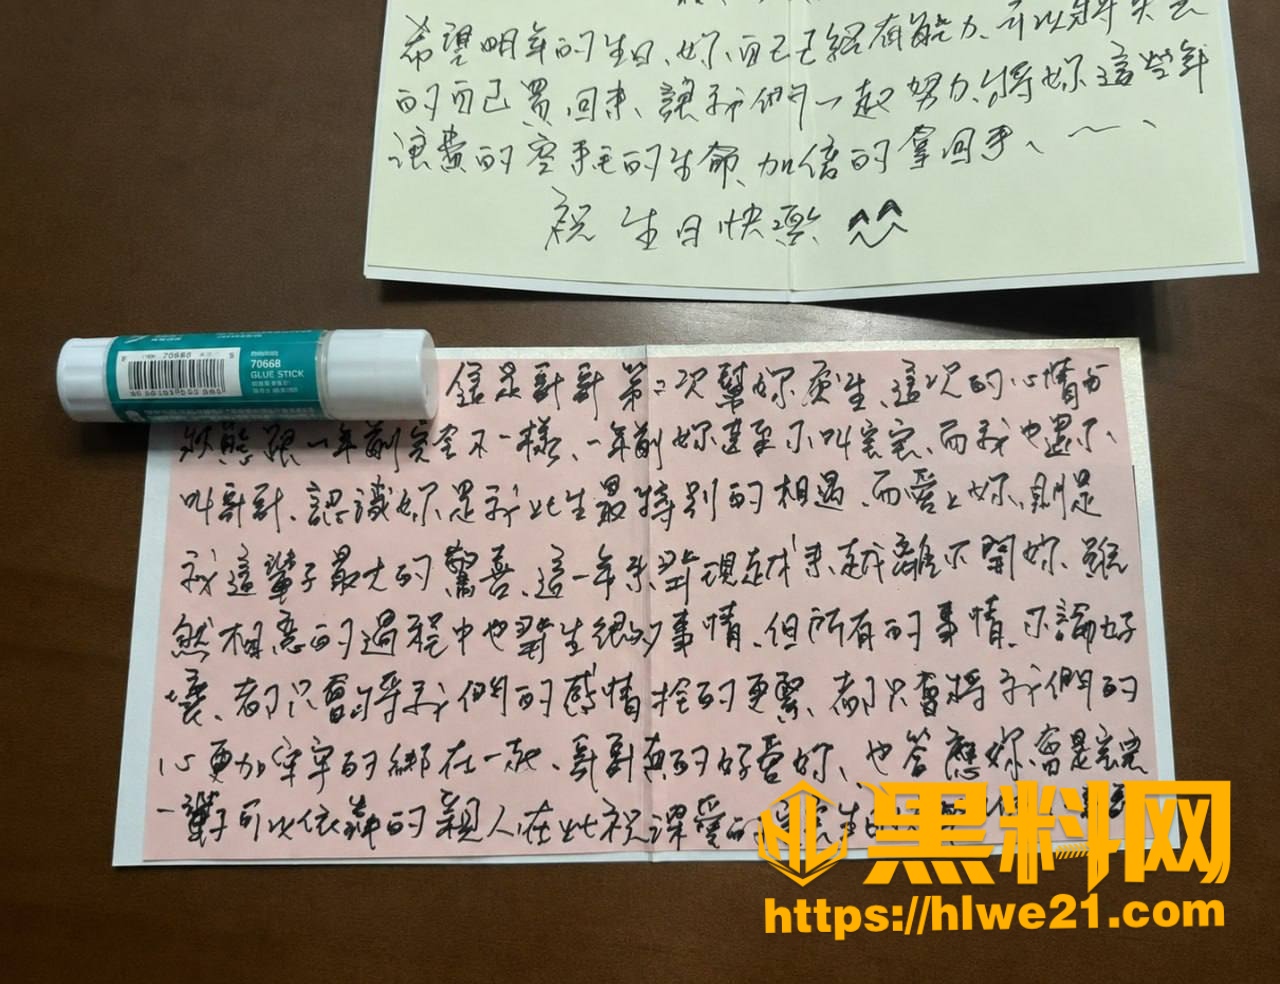 希望明年的生日、妳自己已經有能力、可以將失去
的自己買回來、讓我們一起努力、將妳這些年
浪費的空耗的生命、加倍的拿回來、~、
祝 生日快樂 ^^
70668
70668
GLUE STICK
這是哥哥第二次幫妳慶生、這次的心情與
狀態跟一年前完全不一樣、一年前妳甚至不叫寶寶、而我也還不
叫哥哥、認識妳是我此生最特別的相遇、而愛上妳、則是
我這輩子最大的驚喜、這一年來、發現越來越離不開妳、雖
然相戀的過程中也發生很多事情、但所有的事情、不論好
壞、都只會將我們的感情拴的更緊、都只會將我們的
心更加牢牢的綁在一起、哥哥真的好愛妳、也答應妳、會是寶寶
一輩子可以依靠的親人、在此祝深愛的寶寶生
黑料网
https://hlwe21.com